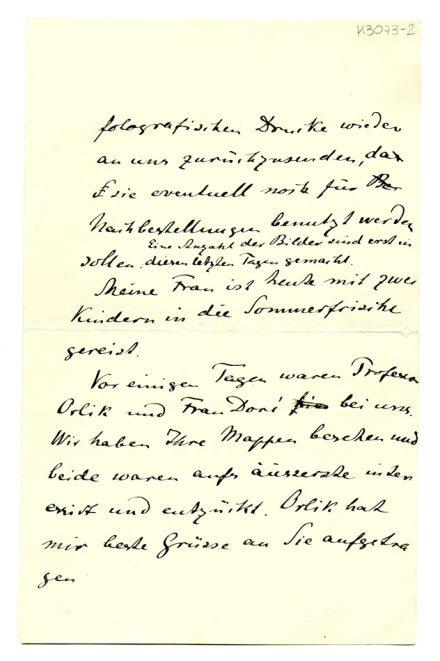 K3073-2
fotografischen Drucke wieder
an uns zurückzusenden, da
sie eventuell noch für
Nachbestellungen benutzt werden
Eine Anzahl der Bilder sind erst in
sollen. diesen letzten Tagen gemacht.
Meine Frau ist heute mit zwei
Kindern in die Sommerfrische
gereist.
Vor einigen Tagen waren Professor
Orlik und Frau Doré bei uns.
Wir haben Ihre Mappen besehen und
beide waren aufs äusserste inter
essirt und entzückt. Orlik hat
mir beste Grüsse an Sie aufgetra
gen